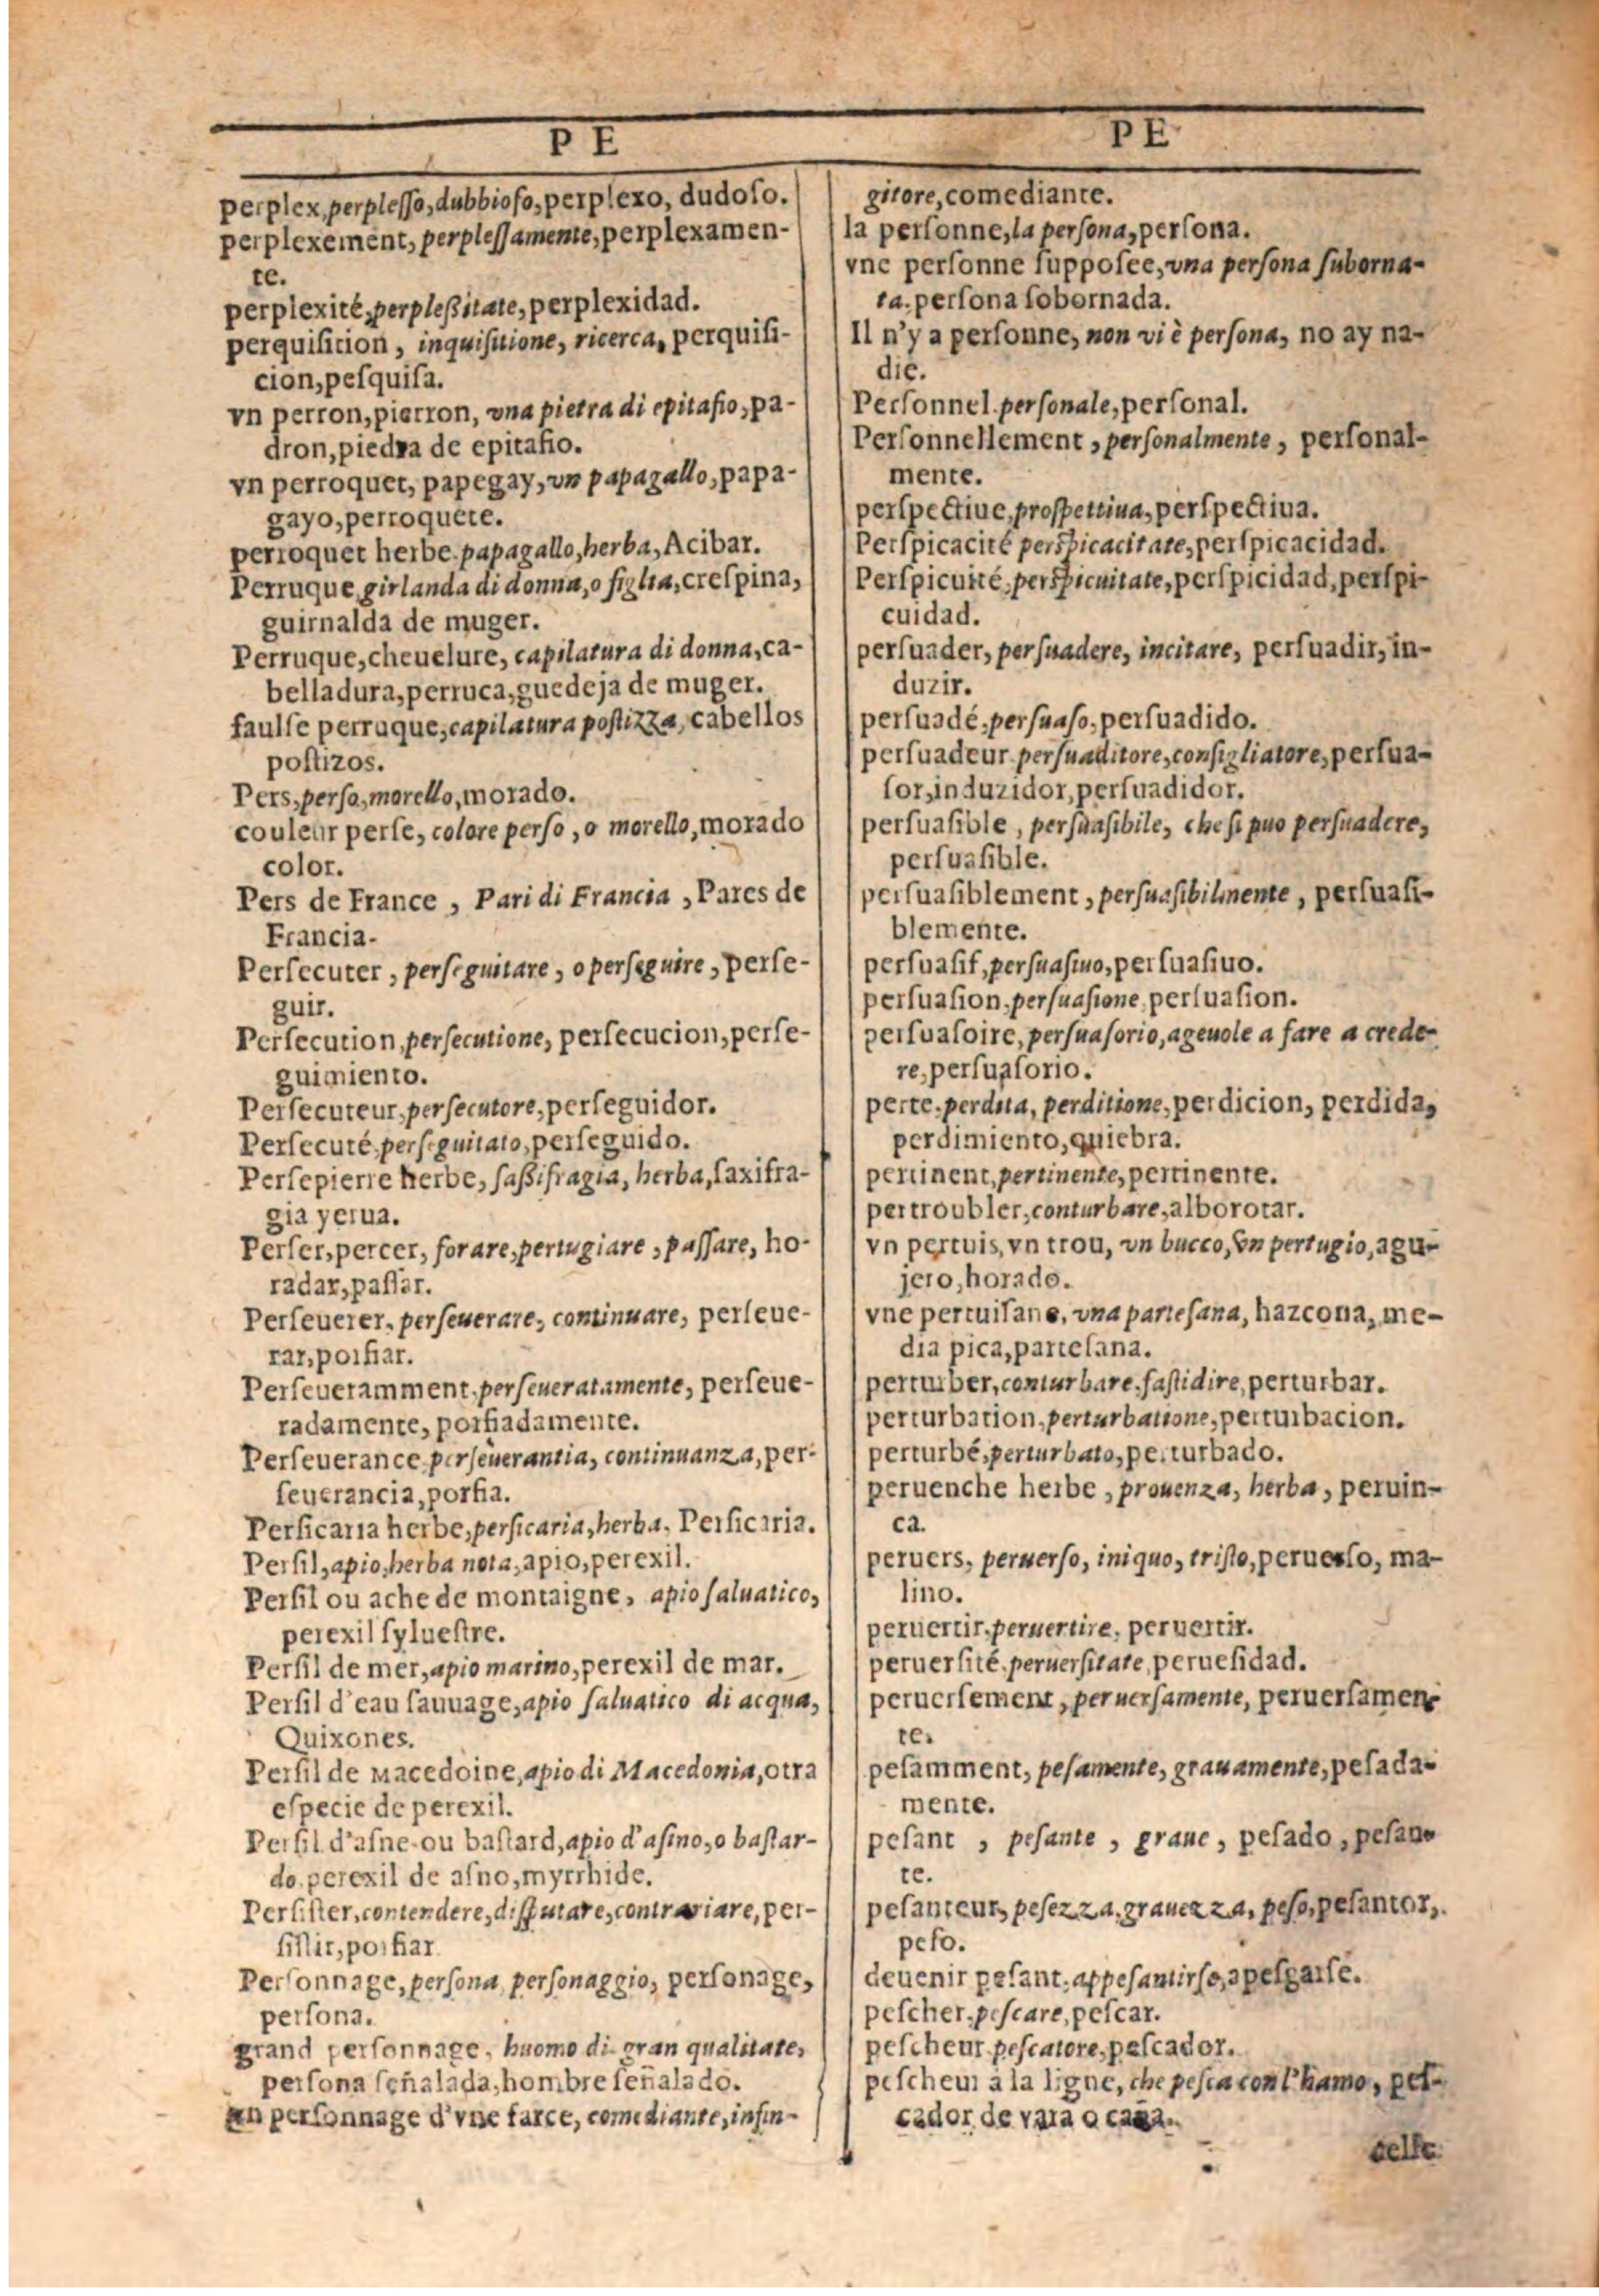 PE
perplex, perplesso, dubbioso, perplexo, dudoso.
perplexement, perplessamente, perplexamen-
te.
perplexité, perpleßitate, perplexidad.
perquisition, inquisitione, ricerca, perquisi-
cion, pesquisa.
vn perron, pierron, vna pietra di epitafio, pa-
dron, piedra de epitafio.
vn perroquet, papegay, vn papagallo, papa-
gayo, perroquete.
perroquet herbe. papagallo, herba, Acibar.
Perruque, girlanda di donna, o figlia, crespina,
guirnalda de muger.
Perruque, cheuelure, capilatura di donna, ca-
belladura, perruca, guedeja de muger.
faulse perruque, capilatura postizza, cabellos
postizos.
Pers, perso, morello, morado.
couleur perse, colore perso, o morello, morado
color.
Pers de France, Pari di Francia, Pares de
Francia.
Persecuter, perseguitare, o perseguire, perse-
guir.
Persecution, persecutione, persecucion, perse-
guimiento.
Persecuteur, persecutore, perseguidor.
Persecuté, perseguitato, perseguido.
Persepierre herbe, saßifragia, herba, saxifra-
gia yerua.
Perser, percer, forare, pertugiare, passare, ho-
radar, passar.
Perseuerer, perseuerare, continuare, perseue-
rar, porfiar.
Perseueramment, perseueratamente, perseue-
radamente, porfiadamente.
Perseuerance. perseuerantia, continuanza, per-
seuerancia, porfia.
Persicaria herbe, persicaria, herba, Persicaria.
Persil, apio, herba nota, apio, perexil.
Persil ou ache de montaigne, apio saluatico,
perexil syluestre.
Persil de mer, apio marino, perexil de mar.
Persil d'eau sauuage, apio saluatico di acqua,
Quixones.
Persil de Macedoine, apio di Macedonia, otra
especie de perexil.
Persil d'asne ou bastard, apio d'asino, o bastar-
do. perexil de asno, myrrhide.
Persister, contendere, disputare, contrariare, per-
sistir, porfiar
Personnage, persona, personaggio, personage,
persona.
grand personnage, huomo di gran qualitate,
persona señalada, hombre señalado.
vn personnage d'vne farce, comediante, infin-
PE
gitore, comediante.
la personne, la persona, persona.
vne personne supposee, vna persona suborna-
ta. persona sobornada.
Il n'y a personne, non vi è persona, no ay na-
die.
Personnel. personale, personal.
Personnellement, personalmente, personal-
mente.
perspectiue, prospettiua, perspectiua.
Perspicacité perspicacitate, perspicacidad.
Perspicuité, perspicuitate, perspicidad, perspi-
cuidad.
persuader, persuadere, incitare, persuadir, in-
duzir.
persuadé, persuaso, persuadido.
persuadeur. persuaditore, consigliatore, persua-
sor, induzidor, persuadidor.
persuasible, persuasibile, che si puo persuadere,
persuasible.
persuasiblement, persuasibilmente, persuasi-
blemente.
persuasif, persuasiuo, persuasiuo.
persuasion, persuasione, persuasion.
persuasoire, persuasorio, ageuole a fare a crede-
re, persuasorio.
perte. perdita, perditione, perdicion, perdida,
perdimiento, quiebra.
pertinent, pertinente, pertinente.
pertroubler, conturbare, alborotar.
vn pertuis, vn trou, vn bucco, vn pertugio, agu-
jero, horado.
vne pertuisane, vna partesana, hazcona, me-
dia pica, partesana.
perturber, conturbare, fastidire, perturbar.
perturbation, perturbatione, perturbacion.
perturbé, perturbato, perturbado.
peruenche herbe, prouenza, herba, peruin-
ca.
peruers, peruerso, iniquo, tristo, peruerso, ma-
lino.
peruertir, peruertire, peruertir.
peruersité, peruersitate, peruesidad.
peruersement, peruersamente, peruersamen-
te.
pesamment, pesamente, grauamente, pesada-
mente.
pesant, pesante, graue, pesado, pesan-
te.
pesanteur, pesezza, grauezza, peso, pesantor,
peso.
deuenir pesant, appesantirse, apesgarse.
pescher, pescare, pescar.
pescheur. pescatore, pescador.
pescheur à la ligne, che pesca con l'hamo, pes-
cador de vara o caña.